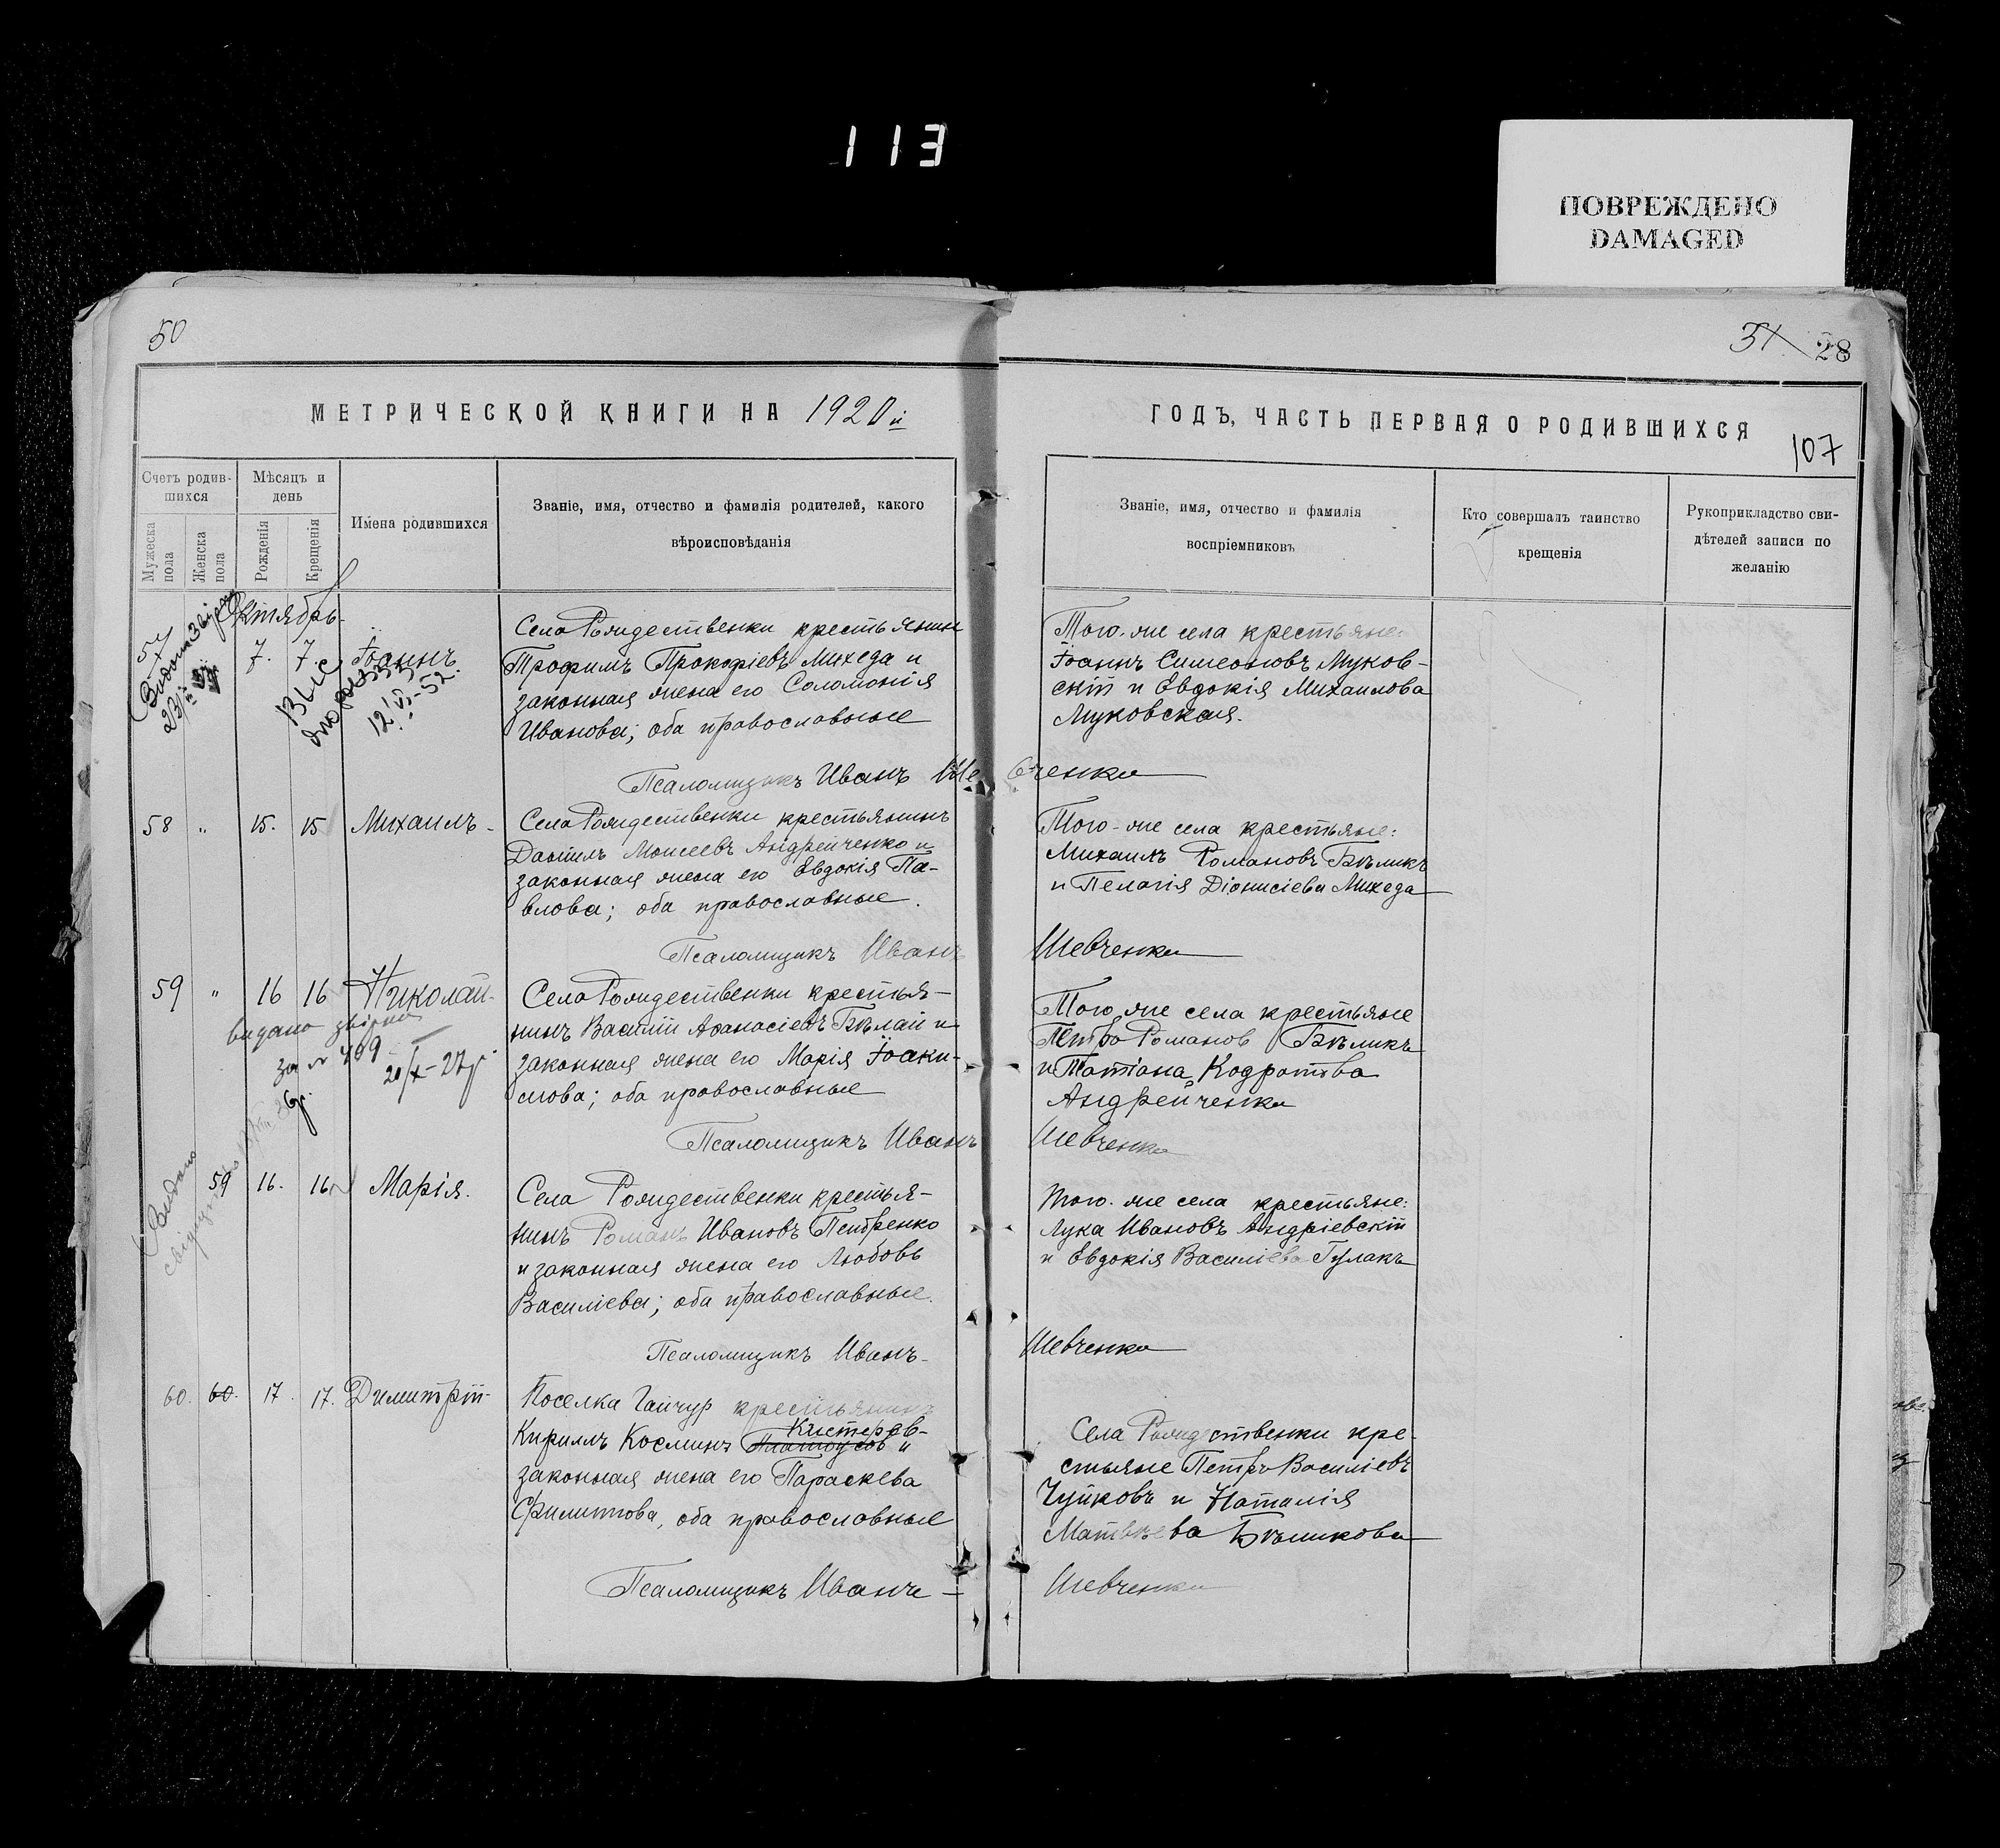 113
ПОВРЕЖДЕНО
DAMAGED
50
МЕТРИЧЕСКОЙ КНИГИ НА 1920й
Счетъ родив-
шихся
Мѣсяцъ и
день
Имена родившихся
Званіе, имя, отчество и фамилія родителей, какого
вѣроисповѣданія
Мужеска
пола
Женска
пола
Рожденія
Крещенія
Октябрь
57 7. 7. Іоаннъ
12/VI-52.
Села Рождественки крестьянинъ
Трофимъ Прокофіевъ Михеда и
законная жена его Соломонія
Иванова; оба православные
Псаломщикъ Иванъ Ше
58 " 15. 15 Михаилъ-
Села Рождественки крестьянинъ
Даниилъ Моисеевъ Андрейченко и
законная жена его Евдокія Па-
влова; оба православные.
Псаломщикъ Иванъ
59 " 16 16 Николай-
видано
за № 499
20/X-27р
Села Рождественки крестья-
нинъ Василій Афанасіевъ Бѣлай и
законная жена его Марія Іоаки-
мова; оба православные
Псаломщикъ Иванъ
59 16. 16 Марія.
Видано
Села Рождественки крестья-
нинъ Романъ Ивановъ Петренко
и законная жена его Любовь
Василіева; оба православные.
Псаломщикъ Иванъ-
60. 60. 17. 17. Димитрій-
Поселка Гайчур крестьянинъ
Кирилъ Косминъ Кистеров-
законная жена его Параскева
Филиппова, оба православные
Псаломщикъ Иванъ-
31 28
ГОДЪ, ЧАСТЬ ПЕРВАЯ О РОДИВШИХСЯ
107
Званіе, имя, отчество и фамилія
воспріемниковъ
Кто совершалъ таинство
крещенія
Рукоприкладство сви-
дѣтелей записи по
желанію
Того-же села крестьяне:
Іоаннъ Симеоновъ Муков-
скій и Евдокія Михаилова
Муковская.
вченко
Того-же села крестьяне:
Михаилъ Романовъ Бѣликъ
и Пелагія Діонисіева Михеда
Шевченко
Того же села крестьяне
Петръ Романов Бѣликъ
и Татіана Кодратова
Андрейченко
Шевченко
Того-же села крестьяне:
Лука Ивановъ Андріевскій
и Евдокія Василіева Гулакъ
Шевченко
Села Рождественки кре-
стьяне Петръ Василіевъ
Чуйковъ и Наталія
Матвѣева Бѣликова
Шевченко